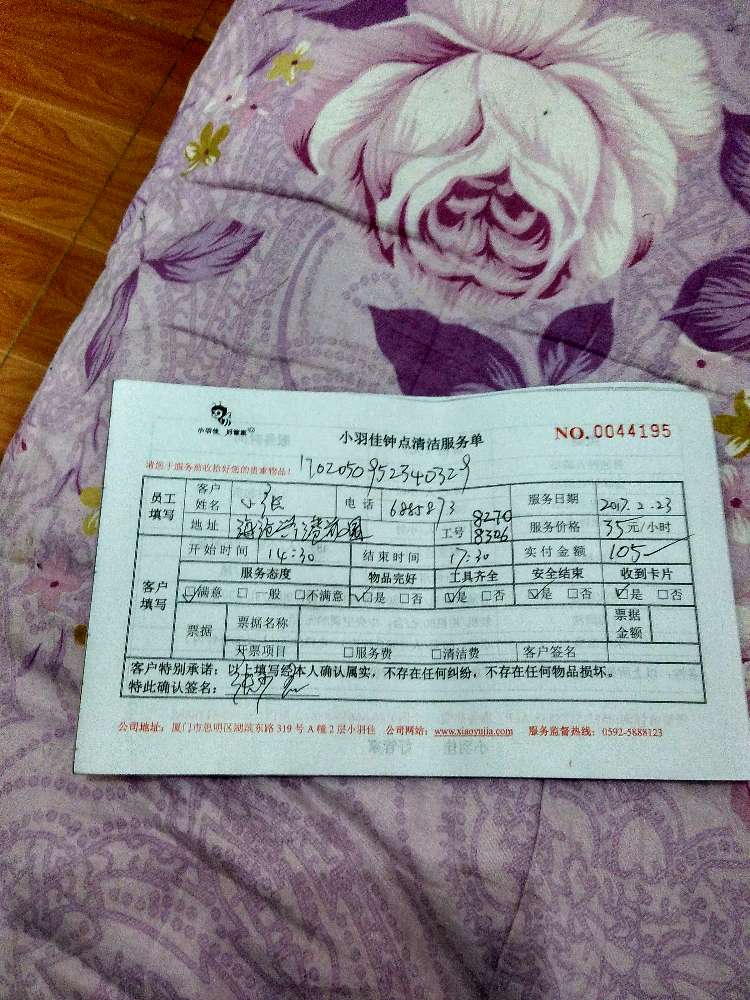 小羽佳 好管家
小羽佳钟点清洁服务单
NO.0044195
请您于服务前收拾好您的贵重物品!
1702050952340329
员工填写 客户姓名 小张 电话 6885873 服务日期 2017.2.23
地址 工号 8270 8306 服务价格 35元/小时
客户填写 开始时间 14:30 结束时间 17:30 实付金额 105
服务态度 物品完好 工具齐全 安全结束 收到卡片
☑满意 □一般 □不满意 ☑是 □否 ☑是 □否 ☑是 □否 ☑是 □否
票据 票据名称 票据金额
开票项目 □服务费 □清洁费 客户签名
客户特别承诺:以上填写经本人确认属实,不存在任何纠纷,不存在任何物品损坏。
特此确认签名:
公司地址:厦门市思明区湖滨东路319号A幢2层小羽佳 公司网站:www.xiaoyujia.com 服务监督热线:0592-5888123